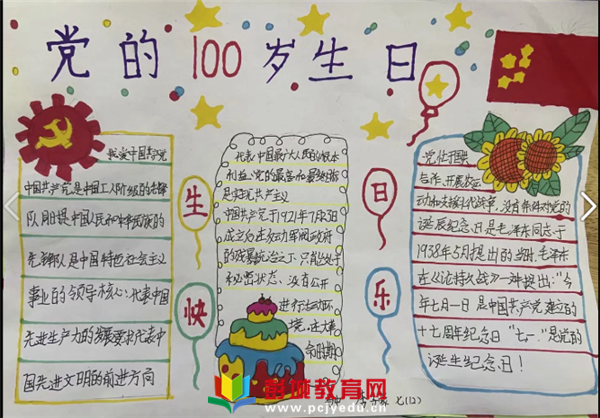 党的100岁生日
生
快
日
乐
我爱中国共产党
中国共产党是中国工人阶级的先锋
队同时是中国人民和中华民族的
先锋队是中国特色社会主义
事业的领导核心,代表中国
先进生产力的发展要求代表中
国先进文明的前进方向
代表中国最广大人民的根本
利益。党的最高和最终
是实现共产主义
中国共产党于1921年7月23日
成立后在反动军阀政府
的残暴统治之下,只能处于
秘密状态,没有公开
进行活动环
境。在大革
命时期
党在国共
合作、开展
动和支援
没有
对党的
诞辰纪念日是毛泽东同志于
1938年5月提出的。当时,毛泽东
在《论持久战》一文中提出:“今
年七月一日,是中国共产党建立的
十七周年纪念日”七一”是党的
诞生纪念日!
七(12)
教育网
www.pcjyedu.cn